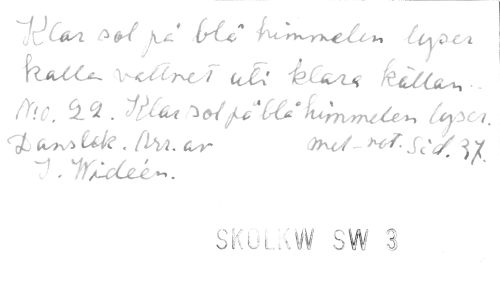 Klar sol på blå himmelen lyser
kalla vattnet uti klara källan..
No. 22. Klar sol på blå himmelen lyser.
Danslek. Arr. av mel-not. Sid. 37.
I. Wideén.
SKOLKW SW 3